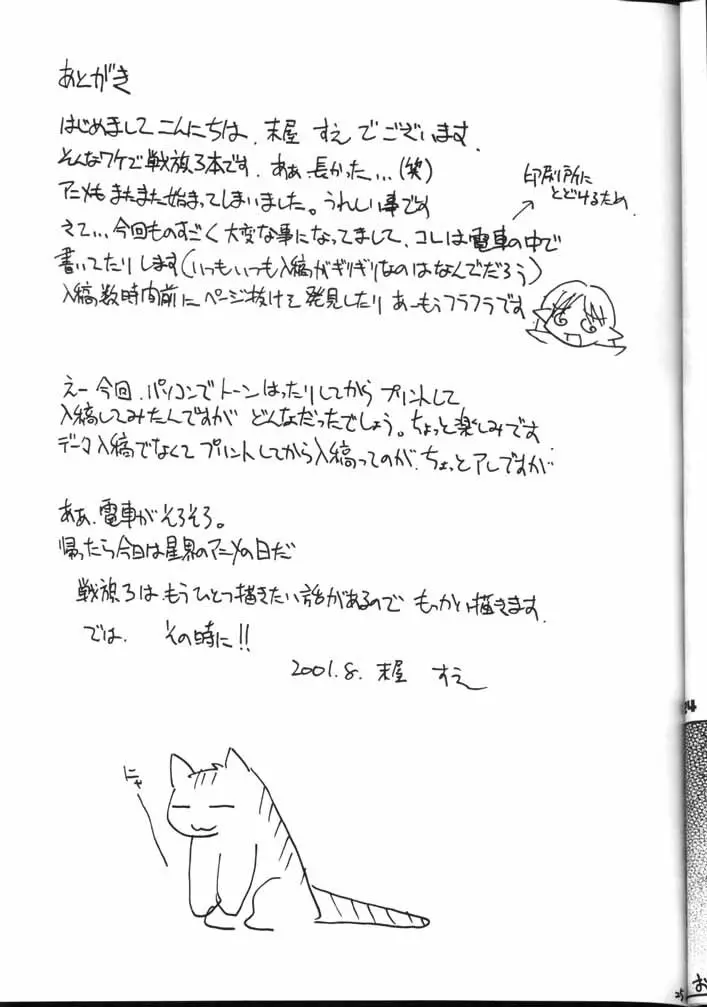 あとがき
はじめまして こんにちは、末屋 すえ でございます.
そんなワケで戦旗3本です. あぁ 長かった…(笑)
アニメも またまた始まってしまいました。うれしい事です
さて… 今回ものすごく 大変な事になってまして、コレは 電車の中で
書いてたりします(いつもいつも入稿がギリギリなのはなんでだろう)
入稿数時間前に ページ抜けを 発見したり あーもうフラフラです
印刷所に
とどけるため.
えー 今回、パソコンで トーン はったりしてから プリントして
入稿してみたんですが どんなだったでしょう。ちょっと楽しみです
データ入稿でなくて プリントしてから入稿ってのが、ちょっと アレですが
ああ、電車が そろそろ。
帰ったら今日は星界のアニメの日だ
戦旗3は もうひとつ描きたい話があるので もっかい描きます.
では、 その時に!!
2001.8. 末屋 すえ
にゃ
25